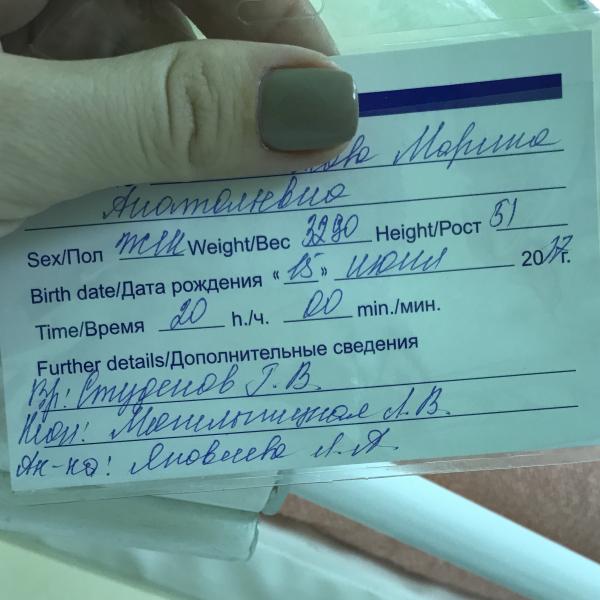 Марина
Анатольевна
Sex/Пол жен Weight/Вес 3290 Height/Рост 51
Birth date/Дата рождения «15» июня 2017г.
Time/Время 20 h./ч. 00 min./мин.
Further details/Дополнительные сведения
Вр: Студенов Г. В.
Неон: Могильницкая Л. В.
Ак-ка: Яковлева Л. А.